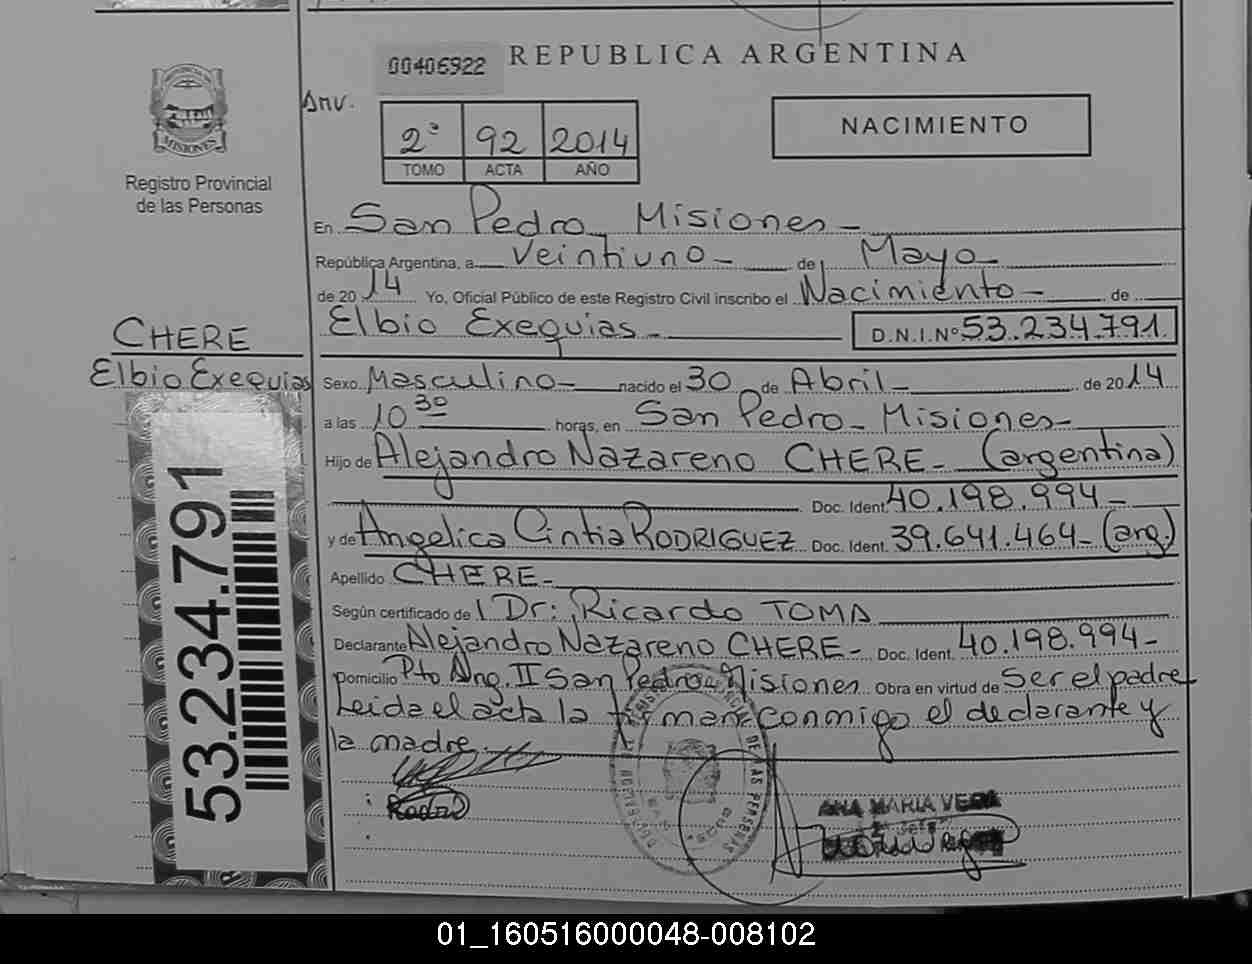 00406922 REPUBLICA ARGENTINA
Registro Provincial
de las Personas
MISIONES
2ª 92 2014
TOMO ACTA AÑO
NACIMIENTO
En San Pedro Misiones
República Argentina, a Veintiuno de Mayo
de 2014 Yo, Oficial Público de este Registro Civil inscribo el Nacimiento de
Elbio Exequias D.N.I.Nº 53.234.791
CHERE
Elbio Exequias
53.234.791
Sexo Masculino nacido el 30 de Abril de 2014
a las 10 30 horas, en San Pedro Misiones
Hijo de Alejandro Nazareno CHERE (argentina)
Doc. Ident. 40.198.994
y de Angelica Cintia RODRIGUEZ Doc. Ident. 39.641.464 (arg.)
Apellido CHERE
Según certificado de Dr: Ricardo TOMA
Declarante Alejandro Nazareno CHERE Doc. Ident. 40.198.994
Domicilio Pto Arg. II San Pedro Misiones Obra en virtud de Ser el padre
Leida el acta la firman conmigo el declarante y
la madre.
ANA MARIA VERA
01_160516000048-008102